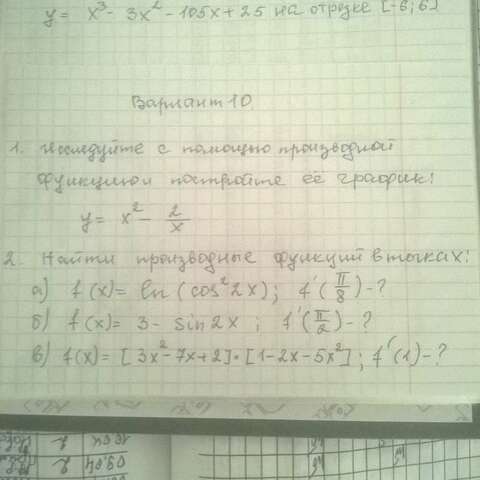 y = x³ - 3x² - 105x + 25 на отрезке [-6; 6]
Вариант 10
1. Исследуйте с помощью производной
функцию и постройте её график:
y = x² - 2/x
2. Найти производные функций в точках:
а) f(x) = ln(cos²2x); f'(π/8) - ?
б) f(x) = 3 - sin2x; f'(π/2) - ?
в) f(x) = [3x² - 7x + 2]·[1 - 2x - 5x²]; f'(1) - ?